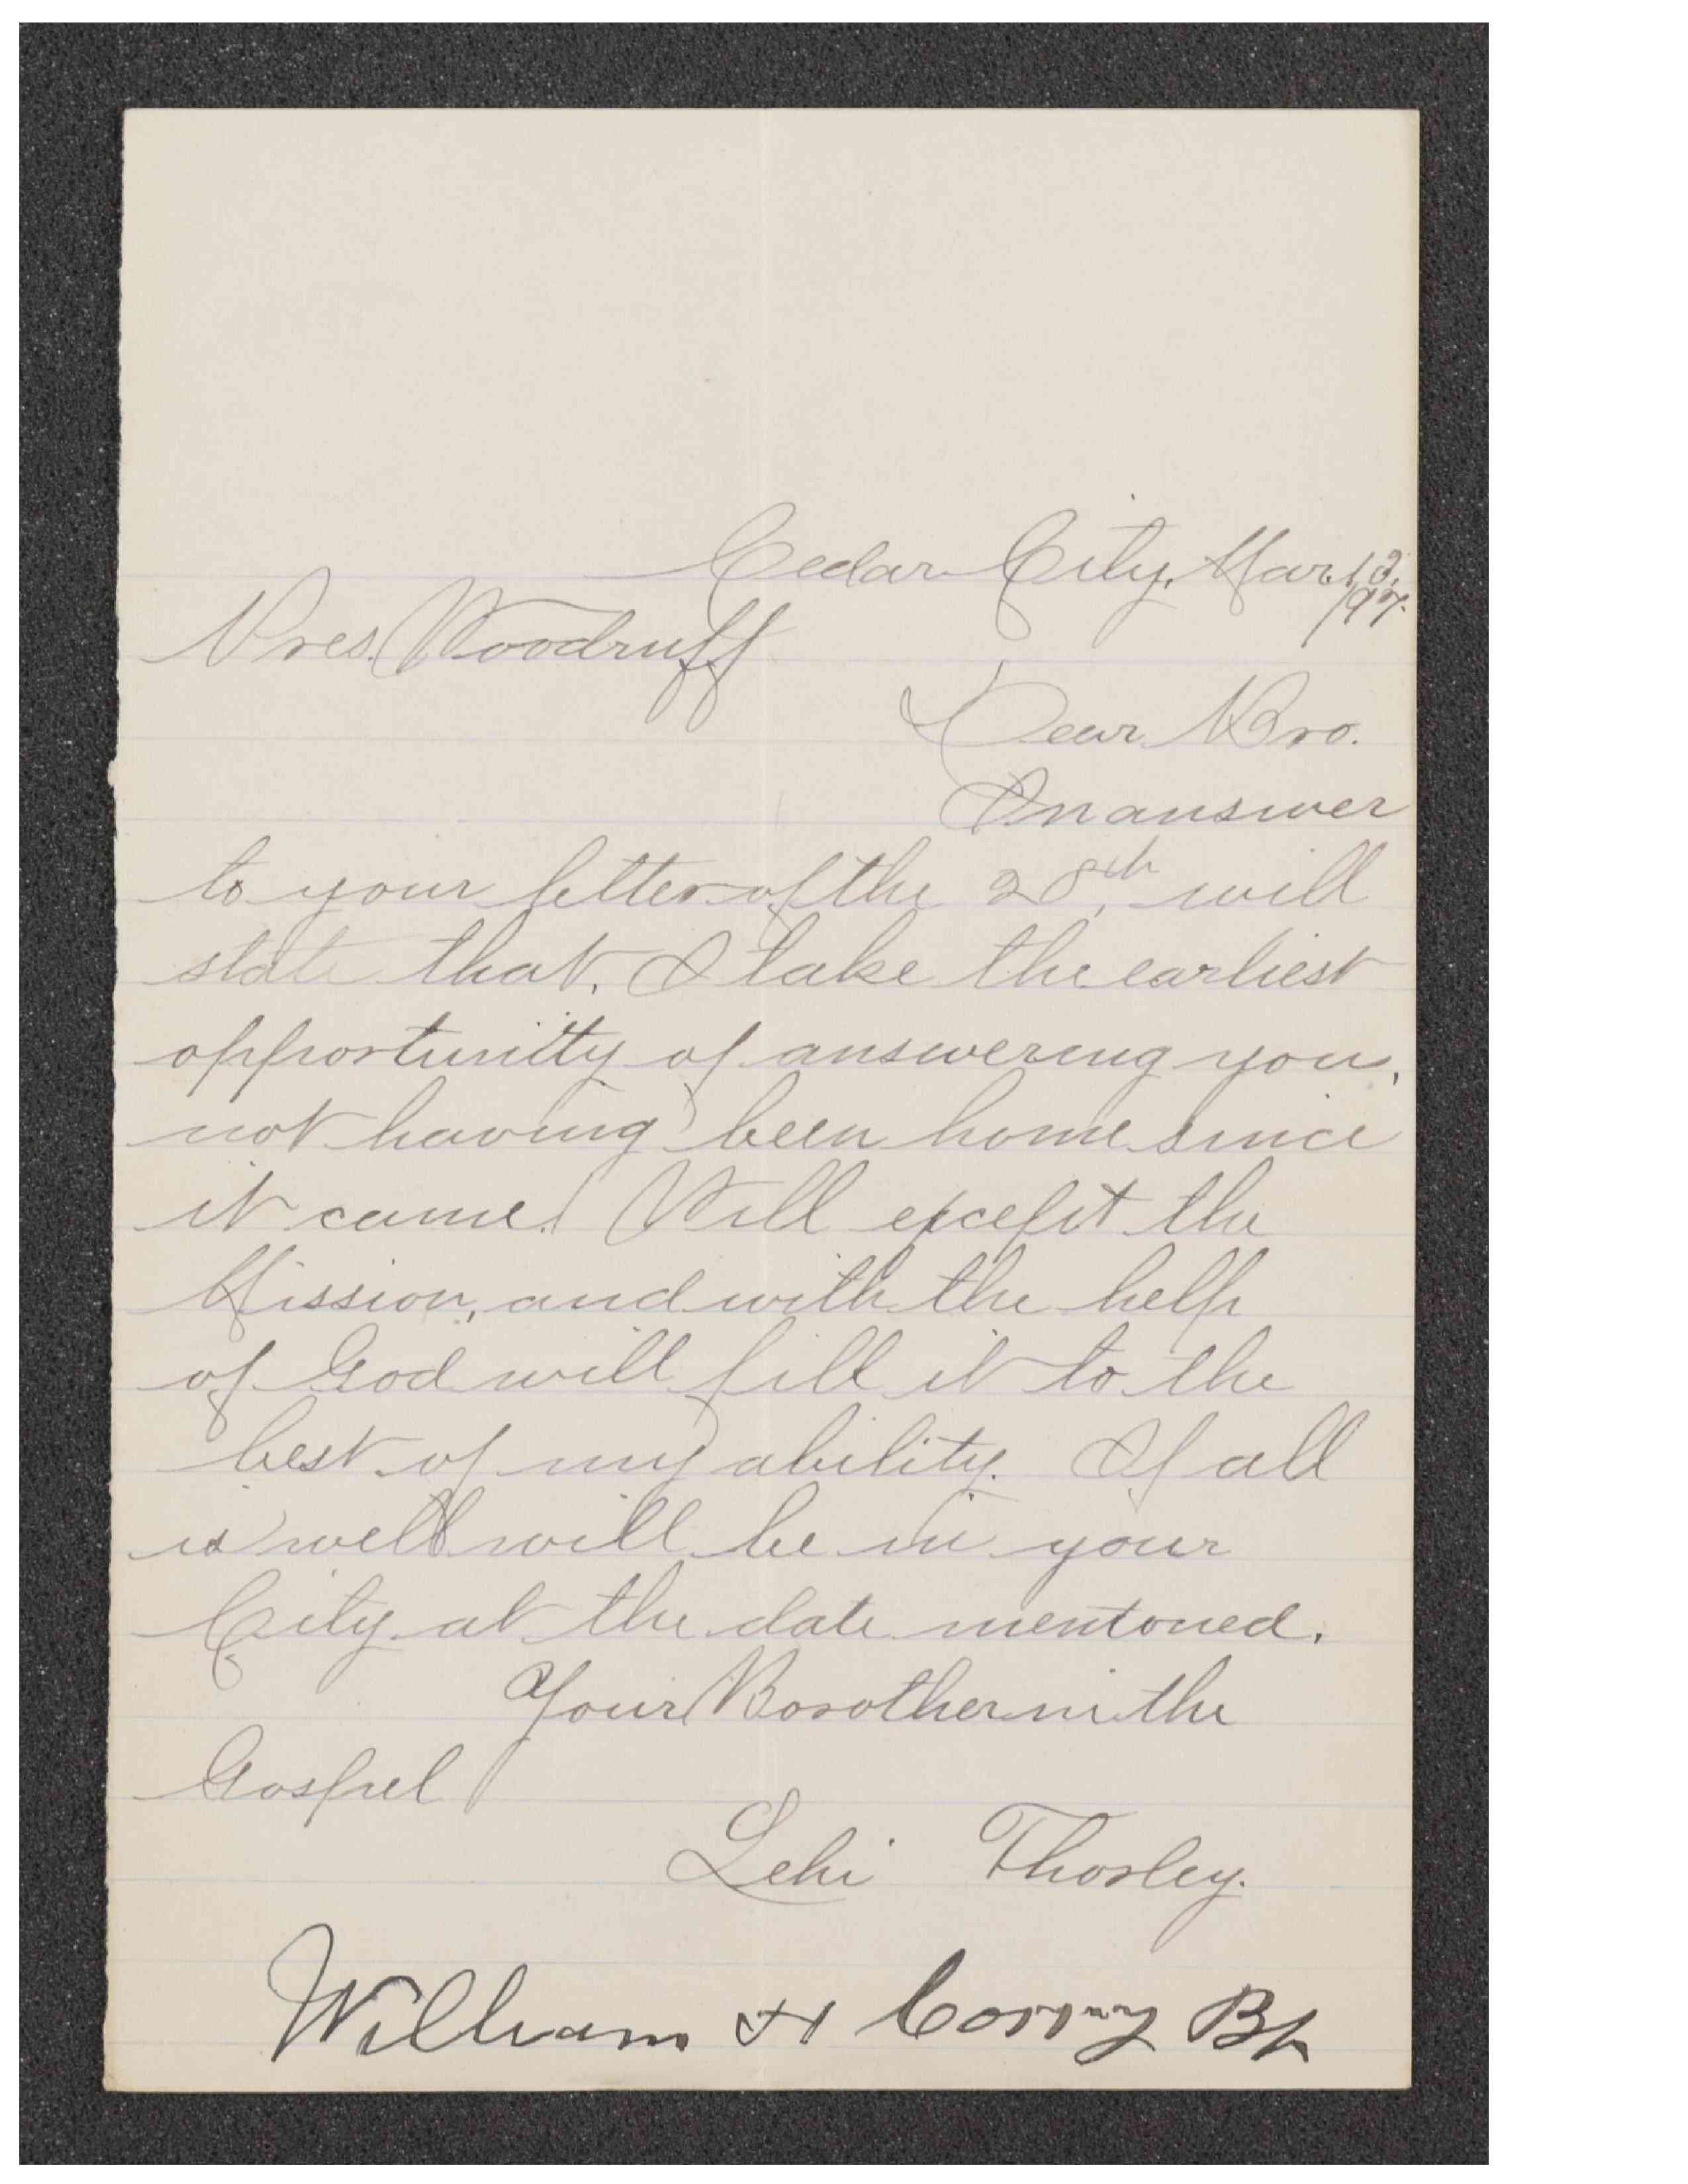 Cedar City, Mar. 13,
/97.
Pres. Woodruff
Dear Bro.
In answer
to your letter of the 28th, will
state that. I take the earliest
opportunity of answering you,
not having been home since
it came. Will except the
Mission, and with the help
of God will fill it to the
best of my ability. If all
is well will be in your
City at the date mentoned.
Your Borother in the
Gospel
Lehi Thorley.
William H Corry Bp